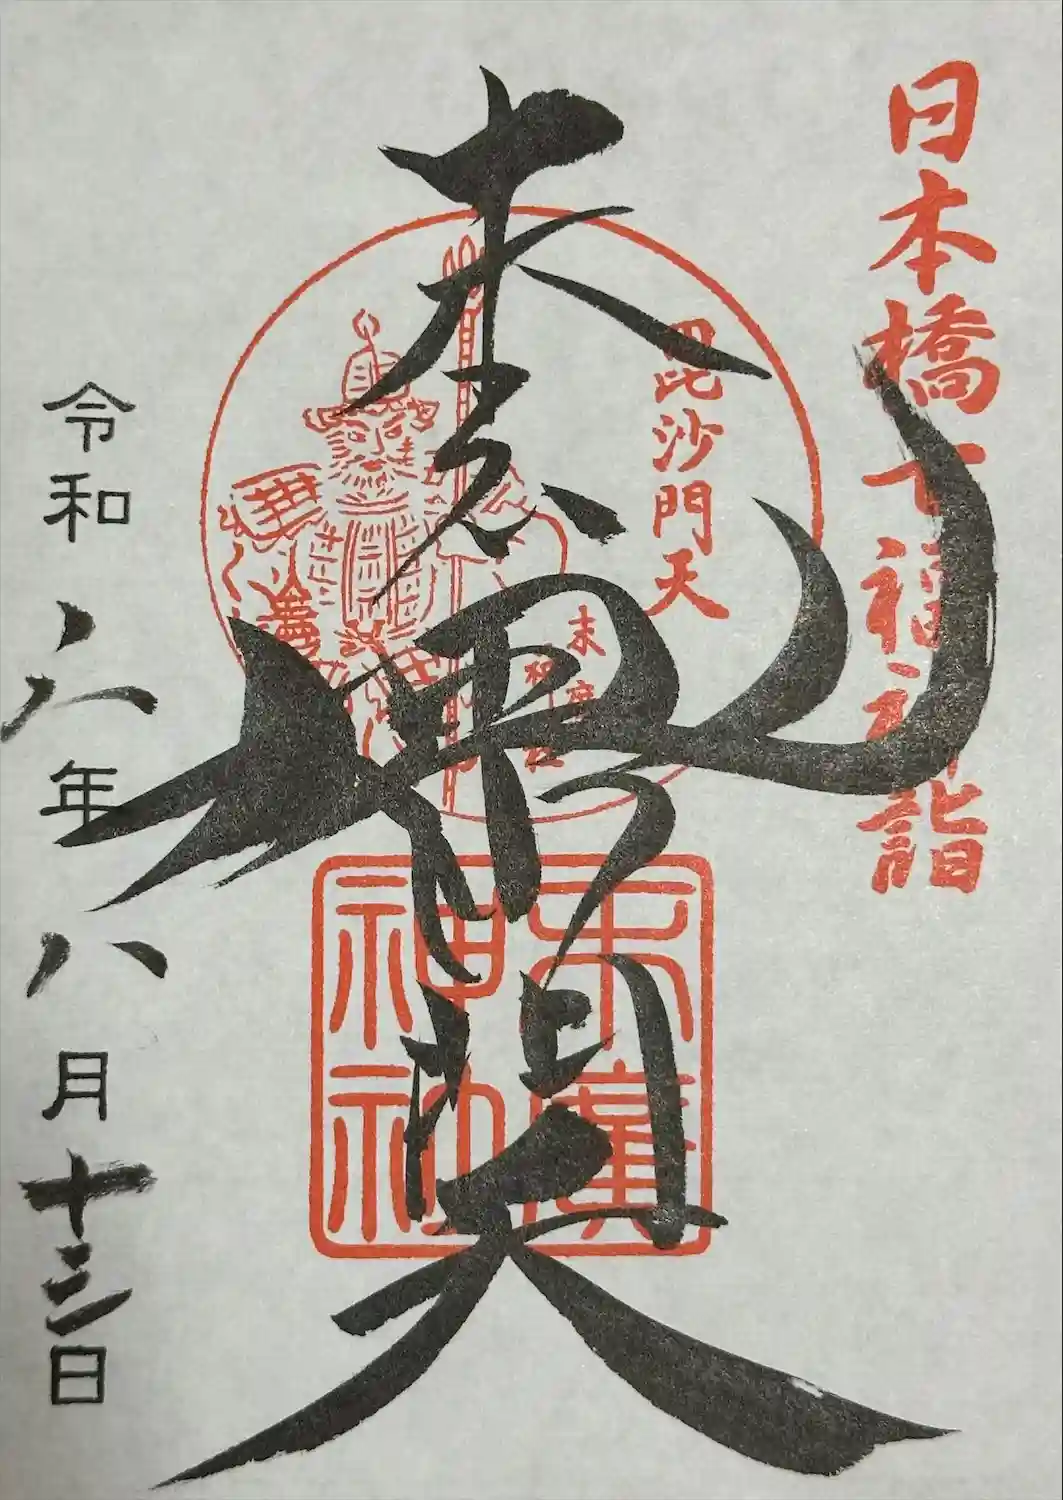 日本橋七福神詣
毘沙門天
末廣神社
毘沙門天
末廣
神社
令和六年八月十三日